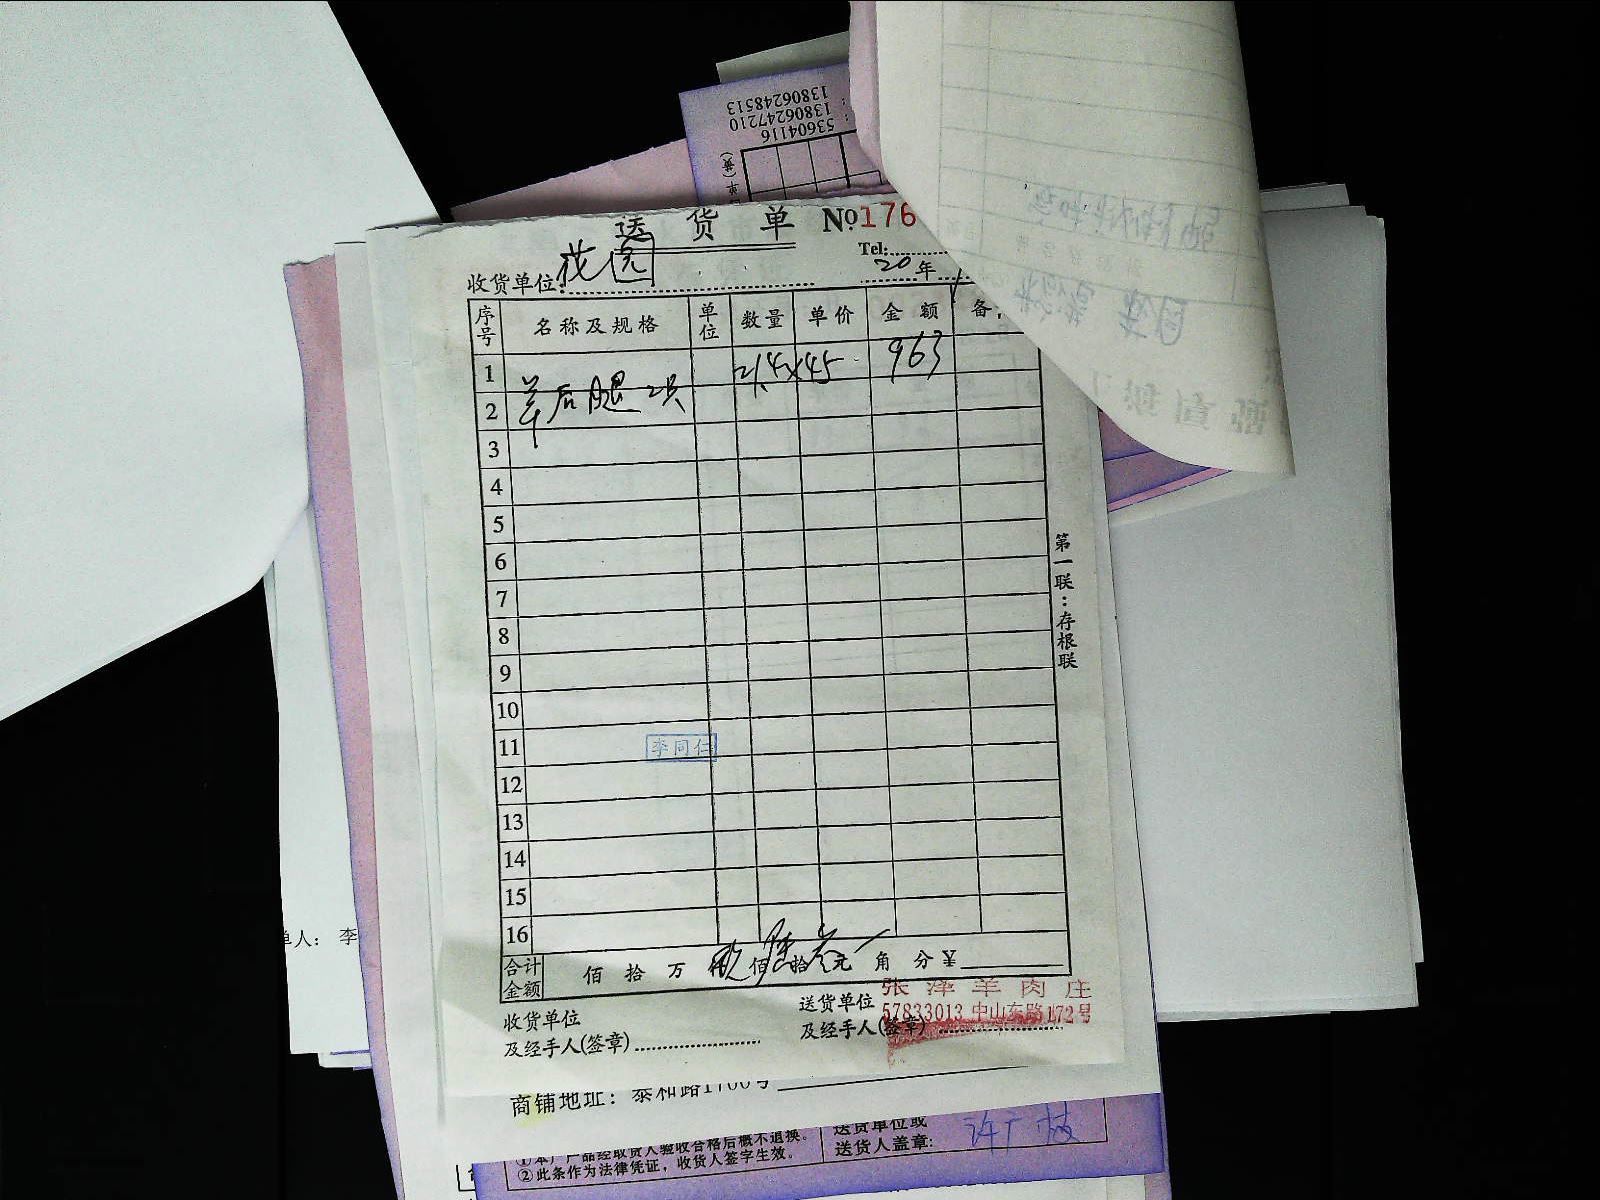 13806248513
13806247210
53604116
送货单 №176
Tel:
收货单位: 花园
20 年
序号 名称及规格 单位 数量 单价 金额 备
1 羊后腿2只 21.4×45 963
2
3
4
5
6
7
8
9
10
11
李同仁
12
13
14
15
16
合计金额 佰 拾 万 仟 玖 佰 陆 拾 叁 元 角 分 ¥
第一联:存根联
收货单位
及经手人(签章)
送货单位
及经手人(签章)
张泽羊肉庄
57833013 中山东路172号
单人: 李
商铺地址: 泰和路1700号
①本产品经取货人验收合格后概不退换。
②此条作为法律凭证,收货人签字生效。
送货单位或
送货人盖章: